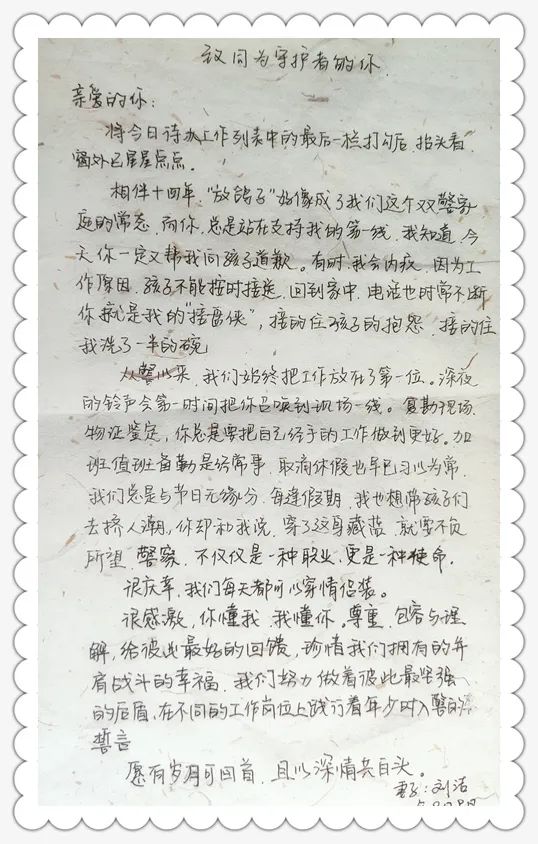 致同为守护者的你
亲爱的你:
将今日待办工作列表中的最后一栏打勾后,抬头看
窗外已星星点点。
相伴十四年,“放鸽子”好像成了我们这个双警家
庭的常态,而你,总是站在支持我的第一线,我知道,今
天你一定又帮我向孩子道歉。有时,我会内疚,因为工
作原因,孩子不能按时接送,回到家中,电话也时常不断
你就是我的“接盘侠”,接的住孩子的抱怨,接的住
我洗了一半的碗
从警以来,我们始终把工作放在了第一位。深夜
的铃声会第一时间把你召唤到现场一线。复勘现场、
物证鉴定,你总是要把自己经手的工作做到更好。加
班值班备勤是经常事,取消休假也早已习以为常,
我们总是与节日无缘分,每逢假期,我也想带孩子们
去挤人潮,你却和我说,穿了这身藏蓝,就要不负
所望,警察,不仅仅是一种职业,更是一种使命,
很庆幸,我们每天都可以穿情侣装。
很感激,你懂我,我懂你。尊重、包容与理
解,给彼此最好的回馈,珍惜我们拥有的并
肩战斗的幸福,我们努力做着彼此最坚强
的后盾,在不同的工作岗位上践行着年少时入警的
誓言
愿有岁月可回首,且以深情共白头。
妻子:刘洁